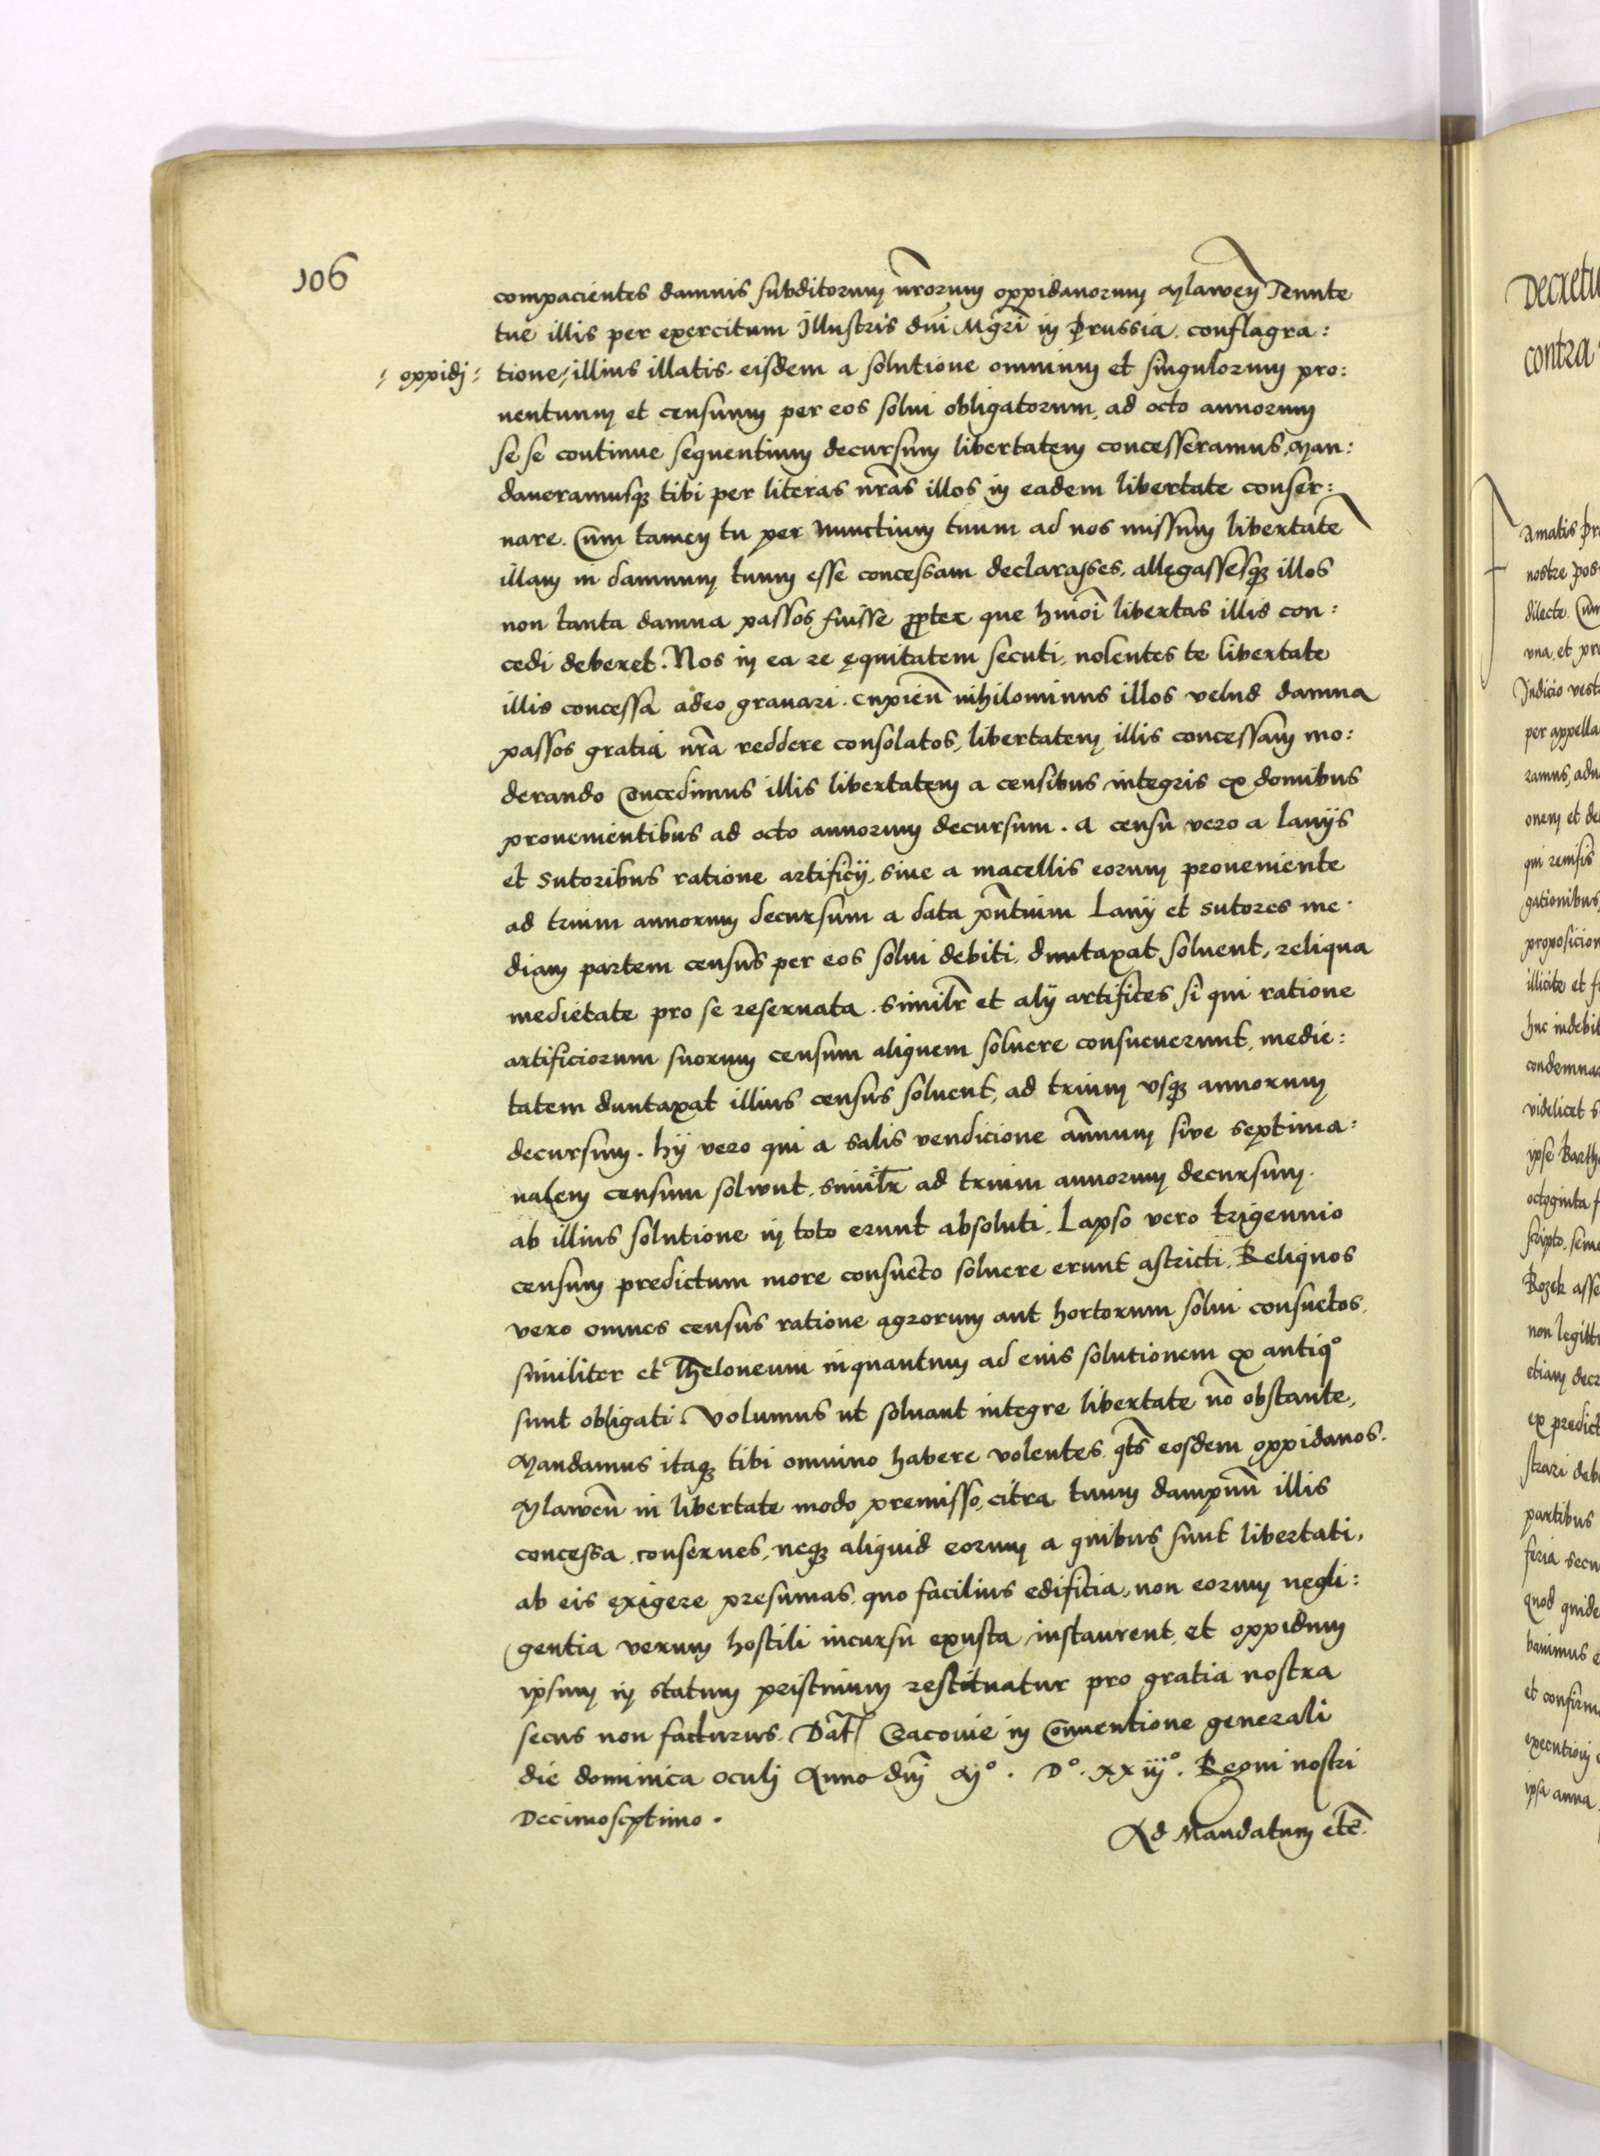 106
compacientes damnis subditorum nrorum oppidanorum Mlawen Tennte
tue illis per exercitum Illustris dni Mgri in Prussia. conflagra:
oppidj
tione illius illatis. eisdem a solutione omnium et singulorum pro:
uentuum et censuum per eos solui obligatorum, ad octo annorum
se se continue sequentium decursum libertatem concesseramus, Man:
daueramusq tibi per literas nras illos in eadem libertate conser:
uare. Cum tamen tu per Nunctium tuum ad nos missum libertate
illam in damnum tuum esse concessam declarasses, allegassesq illos
non tanta damna passos fuisse propter que hmoi libertas illis con:
cedi deberet. Nos in ea re ęquitatem secuti, nolentes te libertate
illis concessa adeo grauari. Cupien nihilominus illos velud damna
passos gratia nra reddere consolatos, libertatem illis concessam mo:
derando Concedimus illis libertatem a censibus integris ex domibus
prouenientibus ad octo annorum decursum. A censu vero a Lanijs
et Sutoribus ratione artificij, siue a macellis eorum proueniente
ad trium annorum decursum a data pntium Lanij et Sutores me:
diam partem census per eos solui debiti, duntaxat soluent, reliqua
medietate pro se reseruata. Similr et alij artifices si qui ratione
artificiorum suorum censum aliquem soluere consueuerunt, medie:
tatem duntaxat illius census soluent, ad trium vsq annorum
decursum. hij vero qui a salis vendicione annuum siue septima:
nalem censum soluunt, similr ad trium annorum decursum
ab illius solutione in toto erunt absoluti. Lapso vero trigennio
censum predictum more consueto soluere erunt astricti. Reliquos
vero omnes census ratione agrorum aut hortorum solui consuetos,
similiter et Theloneum inquantum ad eius solutionem ex antiqo
sunt obligati Volumus ut soluant integre libertate no obstante,
Mandamus itaq tibi omnino habere volentes qts eosdem oppidanos
Mlawen in libertate modo premisso, citra tuum dampnu illis
concessa conserues, neq aliquid eorum a quibus sunt libertati,
ab eis exigere presumas, quo facilius edificia, non eorum negli:
gentia verum hostili incursu exusta instaurent, et oppidum
ipsum in statum pristinum restituatur pro gratia nostra
secus non facturus. Dat Cracouie in Conuentione generali
die dominica oculj Anno dnj Mo. Do. XX iijo. Regni nostri
Decimoseptimo.
Ad Mandatum etc
Decretu
contra
Amatis Pr
nostre pos
dilecte. Cum
vna, et pr
Judicio vest
per appella
ramus, adu
onem et de
qui remisis
gationibus
proposicion
illicite et f
huc indebit
condemna
videlicet s
ipse Barth
octoginta f
scripto, sem
Rozek asse
non legitti
etiam decr
ex predict
strari deb
partibus
feria secu
quod quide
banimus e
et confirm
execution
ipsa anna